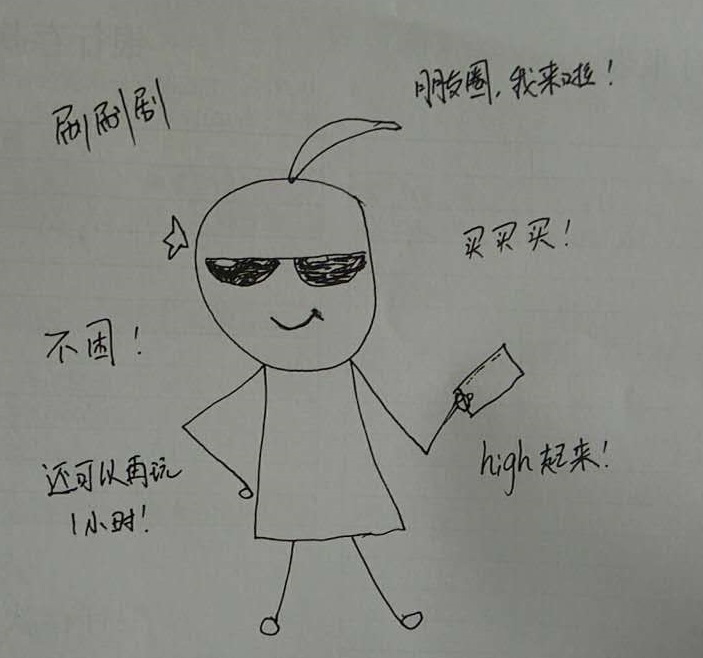 刷刷刷
朋友圈，我来啦！
买买买！
不困！
high起来！
还可以再玩
1小时！